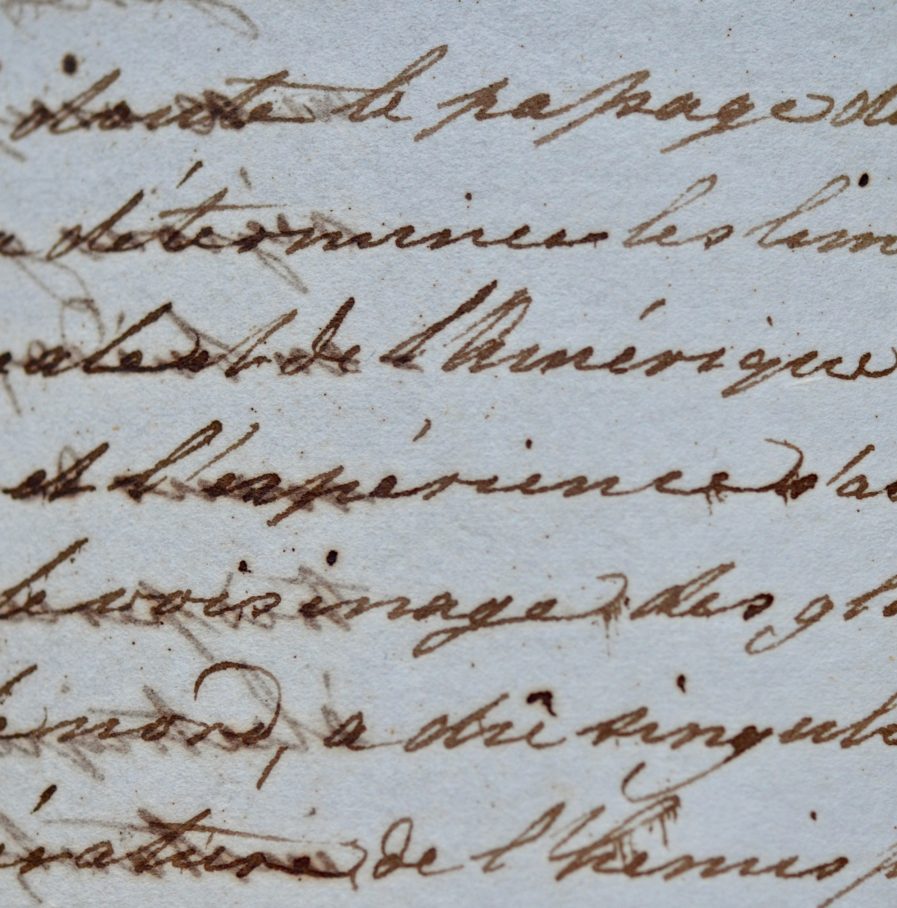 doute le passage de
déterminer les lim
ale et de l'Amérique
et l'expérience s'a
le voisinage des gla
nord, a dû singuliè
érature de l'hémisp